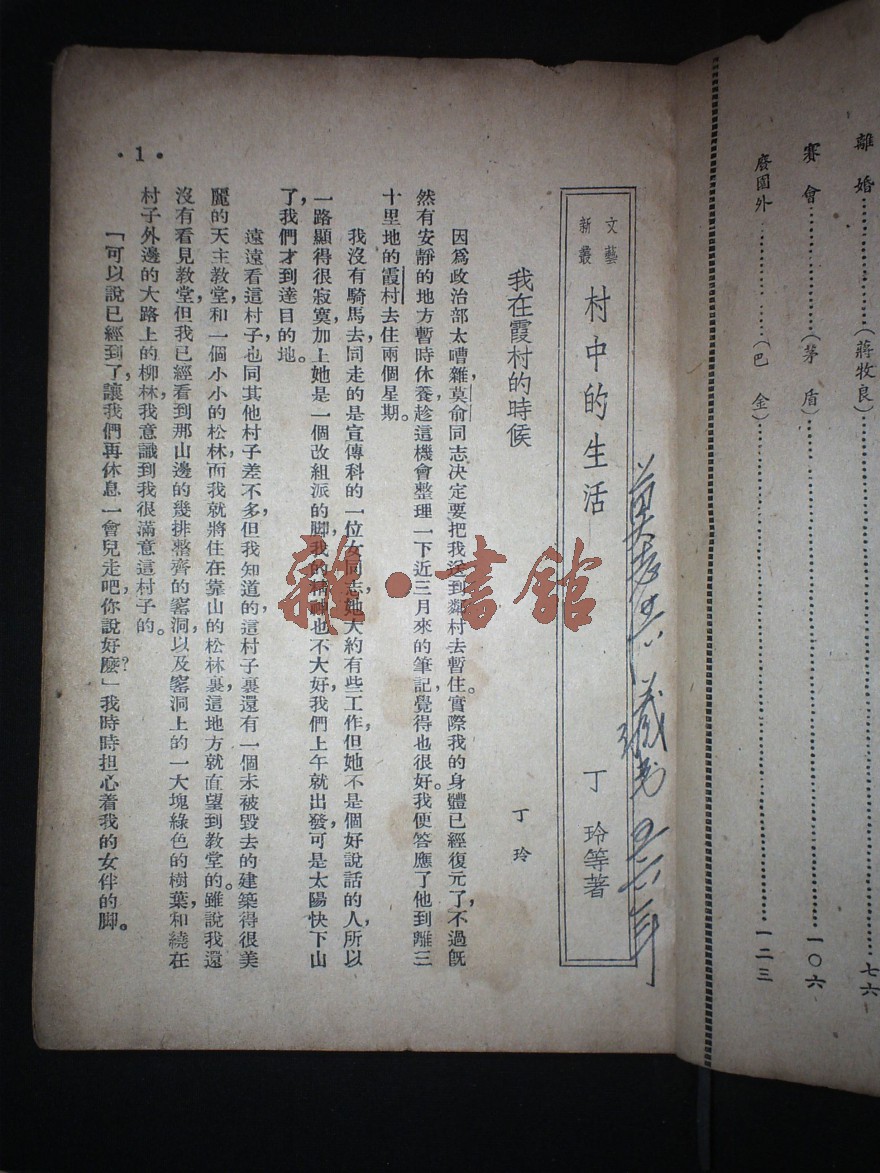 離婚……………………(蔣牧良)……………………七六
賽會……………………(茅盾)……………………一〇六
廢園外……………………(巴金)……………………一二三
文藝新叢
村中的生活 丁玲等著
我在霞村的時候
丁玲
因為政治部太嘈雜,莫俞同志決定要把我送到鄰村去暫住。實際我的身體已經復元了,不過旣
然有安靜的地方暫時休養,趁這機會整理一下近三月來的筆記,覺得也很好。我便答應了他到離三
十里地的霞村去住兩個星期。
我沒有騎馬去,同走的是宣傳科的一位女同志,她大約有些工作,但她不是個好說話的人,所以
一路顯得很寂寞,加上她是一個改組派的脚,我的精神也不大好,我們上午就出發,可是太陽快下山
了,我們才到達目的地。
遠遠看這村子,也同其他村子差不多,但我知道的,這村子裏還有一個未被毀去的建築得很美
麗的天主教堂,和一個小小的松林,而我就將住在靠山的松林裏,這地方就直望到教堂的。雖說我還
沒有看見教堂,但我已經看到那山邊的幾排整齊的窰洞,以及窰洞上的一大塊綠色的樹葉,和繞在
村子外邊的大路上的柳林,我意識到我很滿意這村子的。
「可以說已經到了,讓我們再休息一會兒走吧,你說好麼?」我時時担心着我的女伴的脚。
·1·
雜·書館